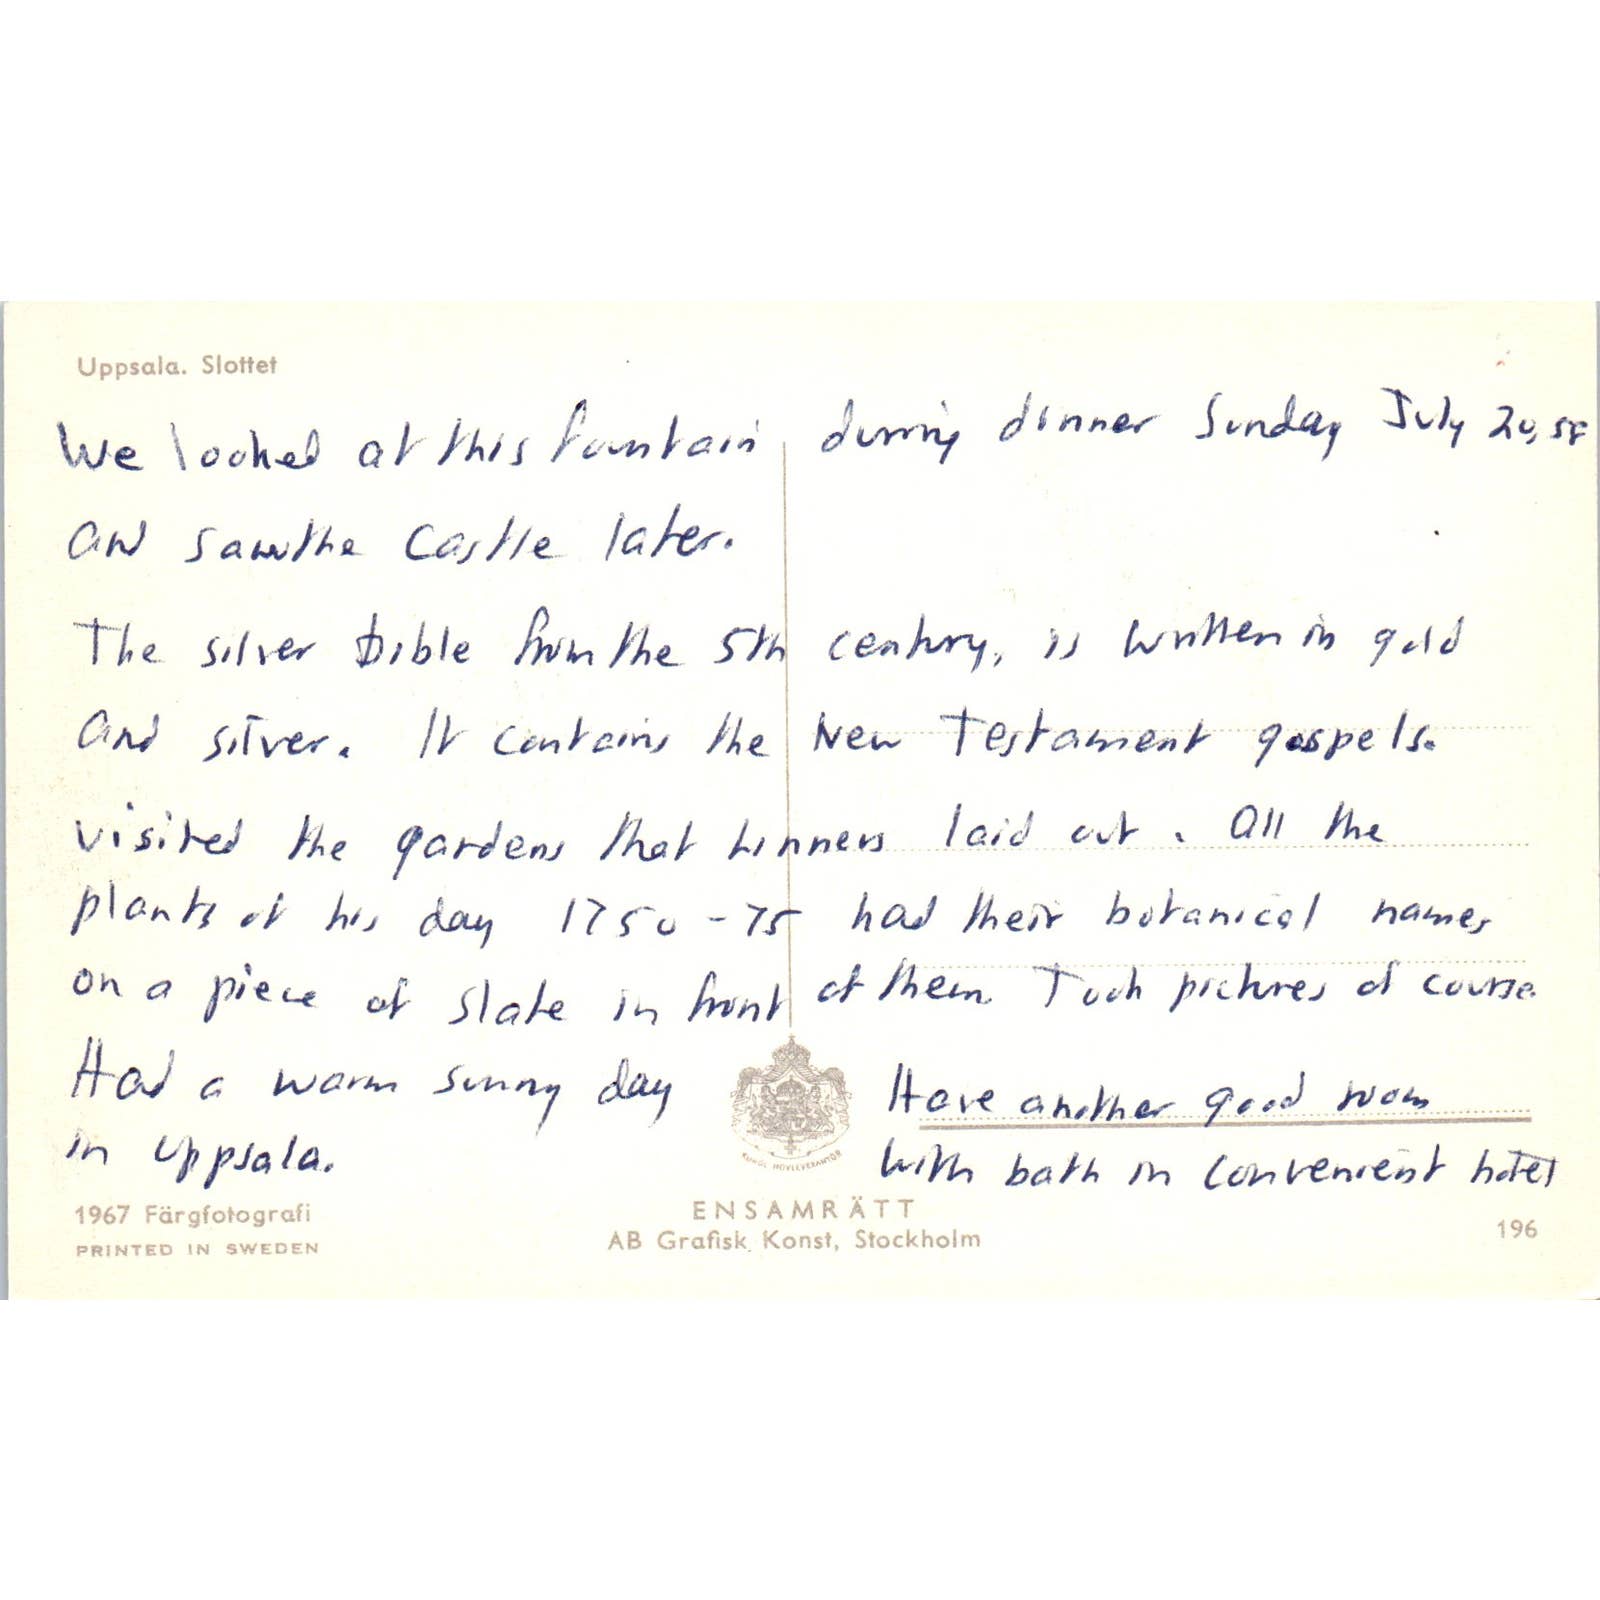 Uppsala. Slottet
We looked at this fountain during dinner Sunday July 20, 58
and saw the Castle later.
The silver Bible from the 5th century, is written in gold
and silver. It contains the New Testament gospels.
visited the gardens that Linneus laid out. All the
plants of his day 1750-75 had their botanical names
on a piece of slate in front of them. Took pictures of course
Had a warm sunny day
in Uppsala.
Have another good room
with bath in convenient hotel
KUNGL. HOVLEVERANTÖR
1967 Färgfotografi
PRINTED IN SWEDEN
ENSAMRÄTT
AB Grafisk Konst, Stockholm
196